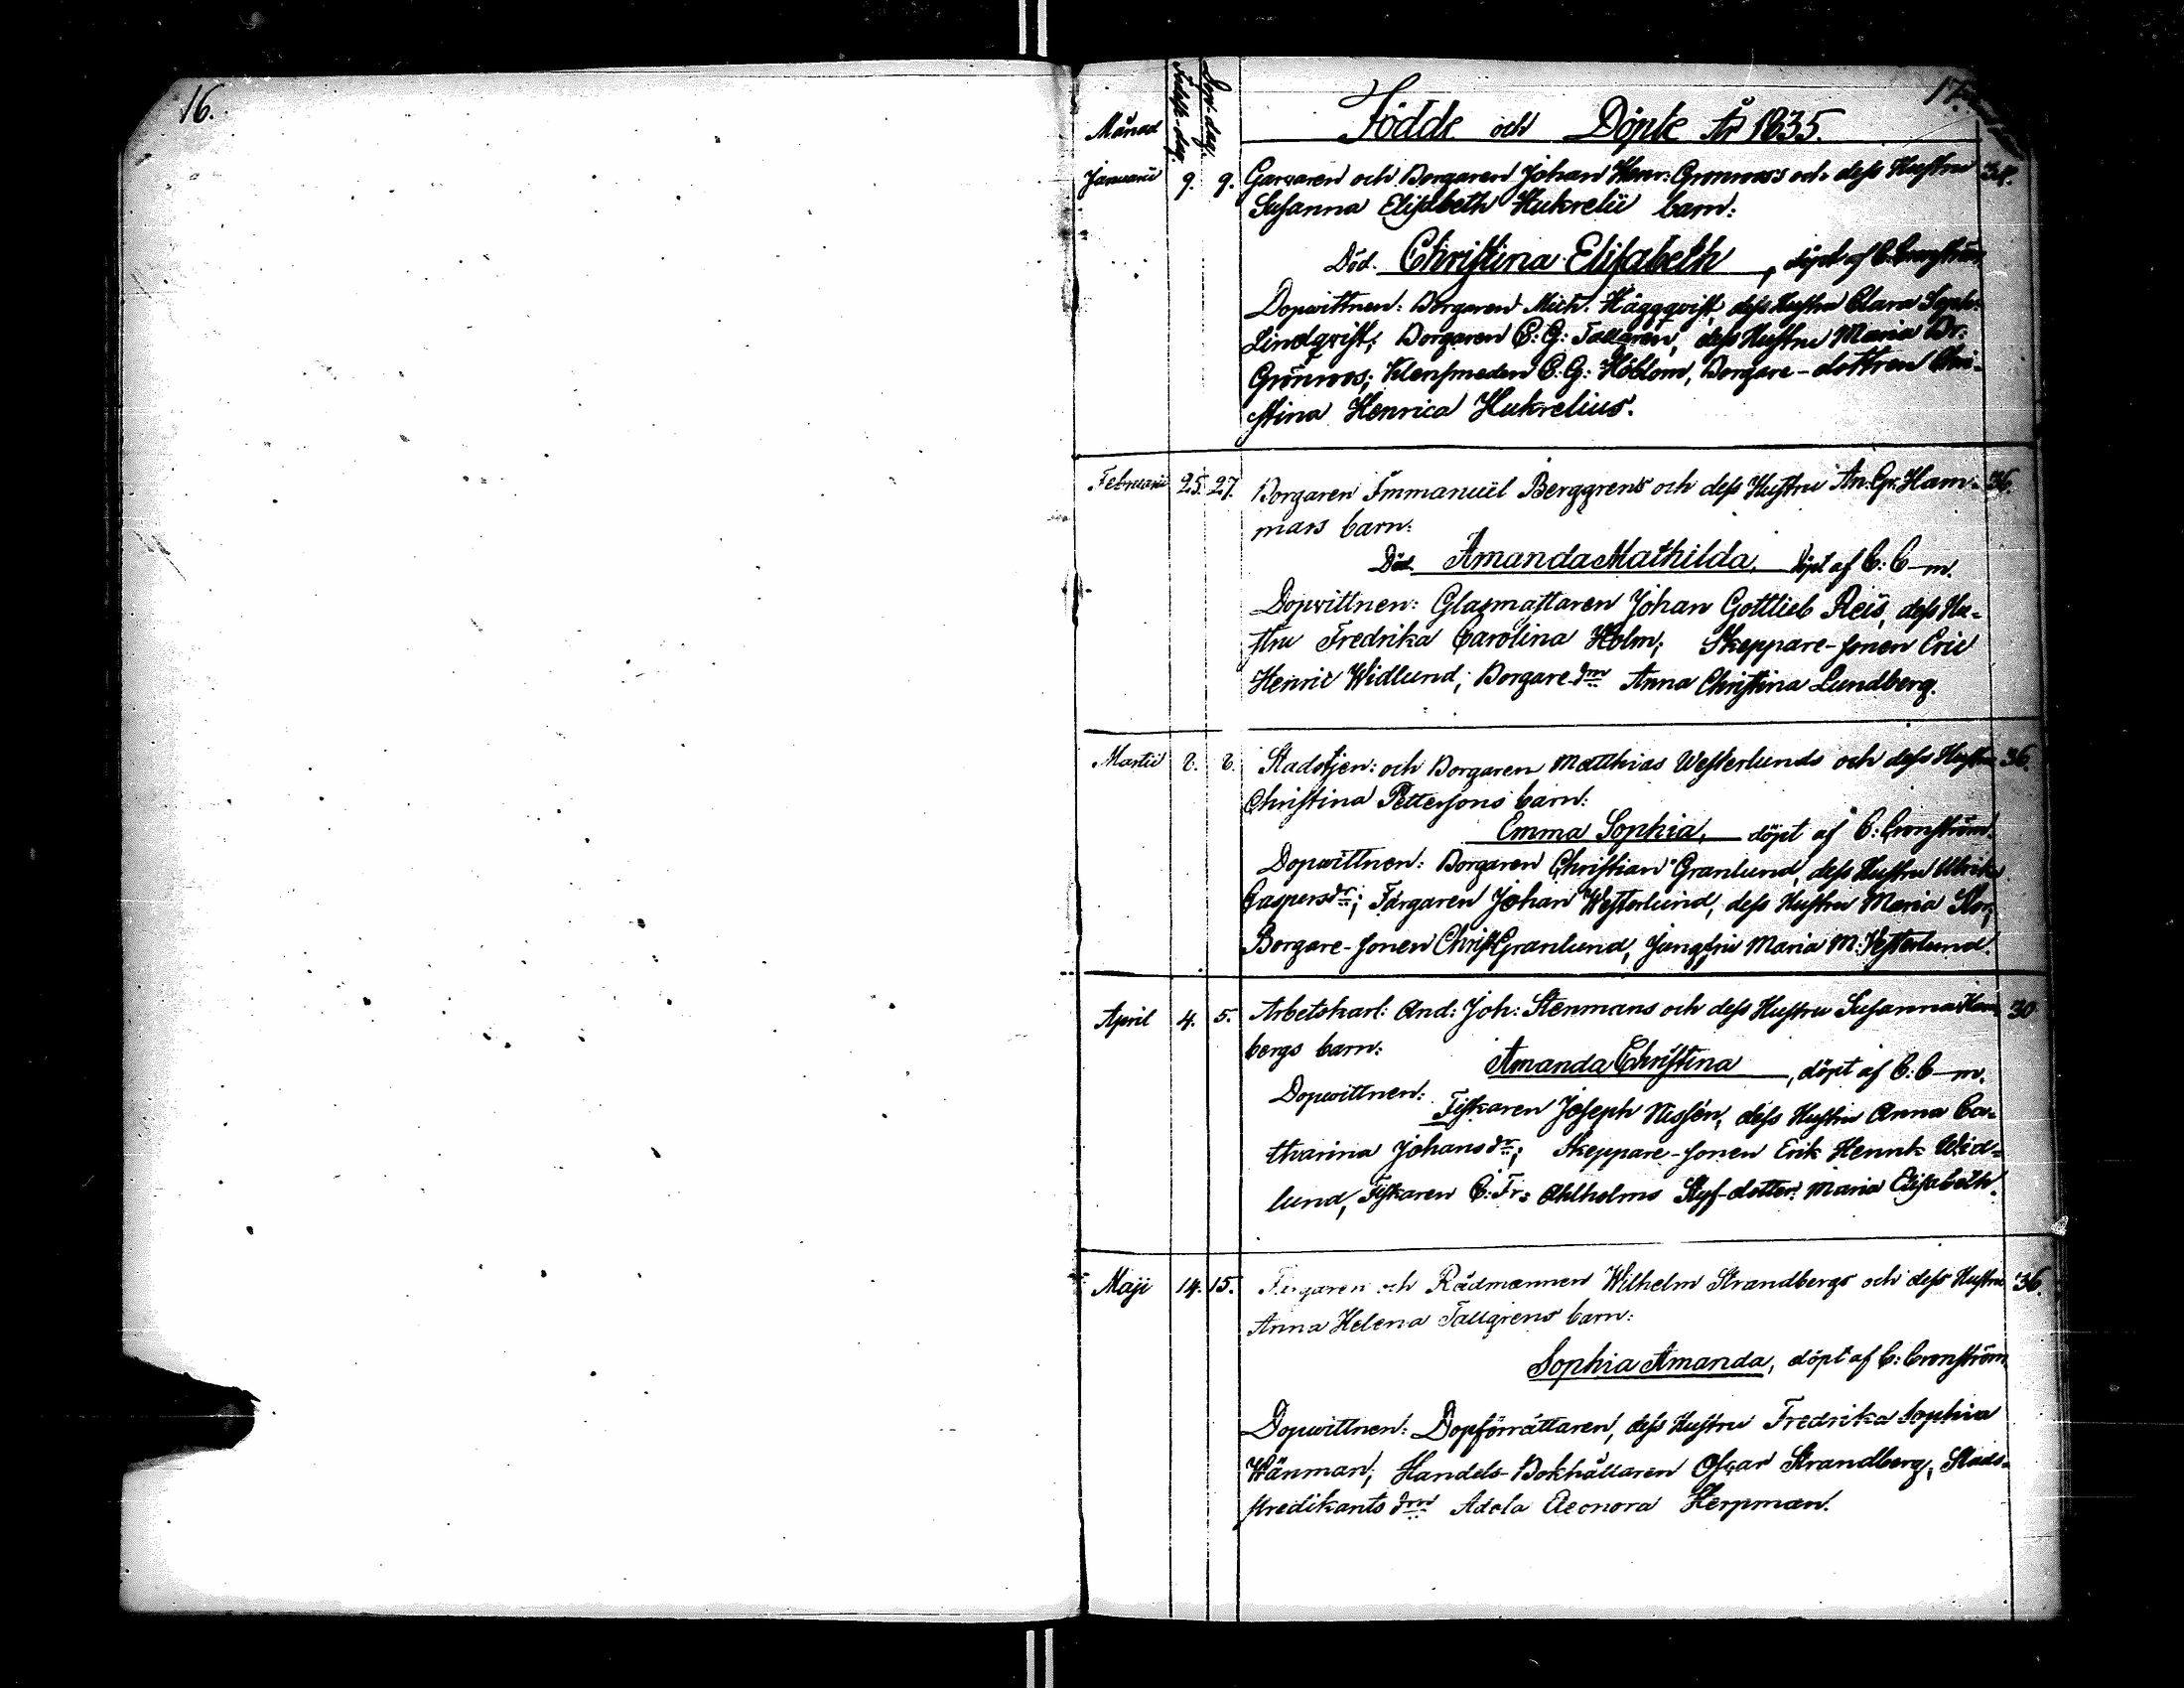 16.
17.
Månad Födelse-dag. Döpt. dag.
Födde och Döpte År 1835.
Januarii 9. 9. Garvaren och Borgaren Johan Henr: Grönroos och dess Hustru 34.
Susanna Elisabeth Hukrelii barn:
Död. Christina Elisabeth, döpt af C: Cronström
Dopvittnen: Borgaren Mich. Häggqvist, dess Hustru Clara Soph:
Lindqvist; Borgaren C: G: Tallgren, dess Hustru Maria Br.
Grönroos; Klensmeden C. G: Höblom, Borgare-dottren Chri-
stina Henrica Hukrelius.
Februarii 25. 27. Borgaren Immanuel Berggrens och dess Hustru An. Gr. Ham- 36.
mars barn:
Död. Amanda Mathilda, döpt af C: C—m.
Dopvittnen: Glasmästaren Johan Gottlieb Reis, dess Hu-
stru Fredrika Carolina Holm; Skeppare-sonen Eric
Henric Widlund; Borgare-drn Anna Christina Lundberg.
Martii 8. 8. Stadstjen: och Borgaren Matthias Westerlunds och dess Hustru 36.
Christina Pettersons barn:
Emma Sophia, döpt af C: Cronström.
Dopvittnen: Borgaren Christian Granlund, dess Hustru Ulrika
Caspersdr; Färgaren Johan Westerlund, dess Hustru Maria Stor;
Borgare-sonen Christ Granlund, Jungfru Maria M: Westerlund.
April 4. 5. Arbetskarl: And: Joh: Stenmans och dess Hustru Susanna Ham- 30
bergs barn:
Amanda Christina, döpt af C: C—m.
Dopvittnen: Fiskaren Joseph Nissén, dess Hustru Anna Ca-
tharina Johansdr; Skeppare-sonen Erik Henrik Wid-
lund, Fiskaren C: Fr: Ahlholms Styf-dotter Maria Elisabeth.
Maji 14. 15. Färgaren och Rådmannen Wilhelm Strandbergs och dess Hustru 36.
Anna Helena Tallgrens barn:
Sophia Amanda, döpt af C: Cronström
Dopvittnen: Dopförrättaren, dess Hustru Fredrika Sophia
Wänman; Handels-Bokhållaren Oscar Strandberg, Stads-
predikants drn Adela Eleonora Herpman.